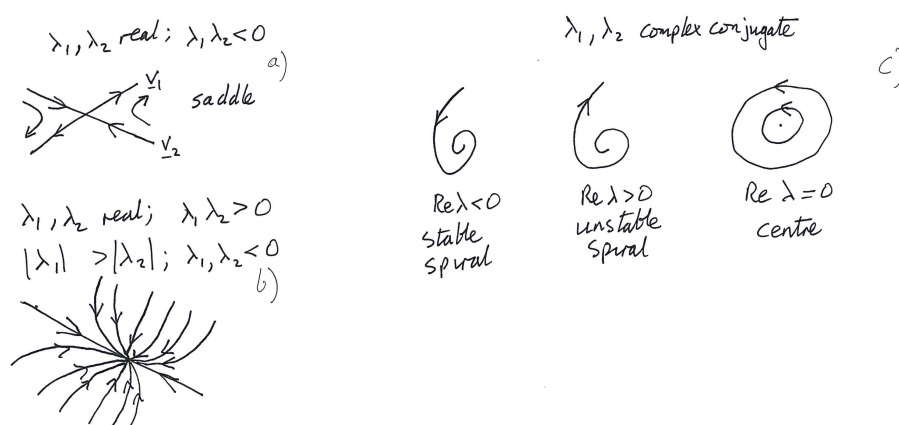 λ₁, λ₂ real; λ₁λ₂<0
a)
v₁
saddle
v₂
λ₁, λ₂ real; λ₁λ₂>0
|λ₁| >|λ₂|; λ₁, λ₂<0
b)
λ₁, λ₂ complex conjugate
c)
Reλ<0
stable
spiral
Reλ>0
unstable
spiral
Re λ=0
centre